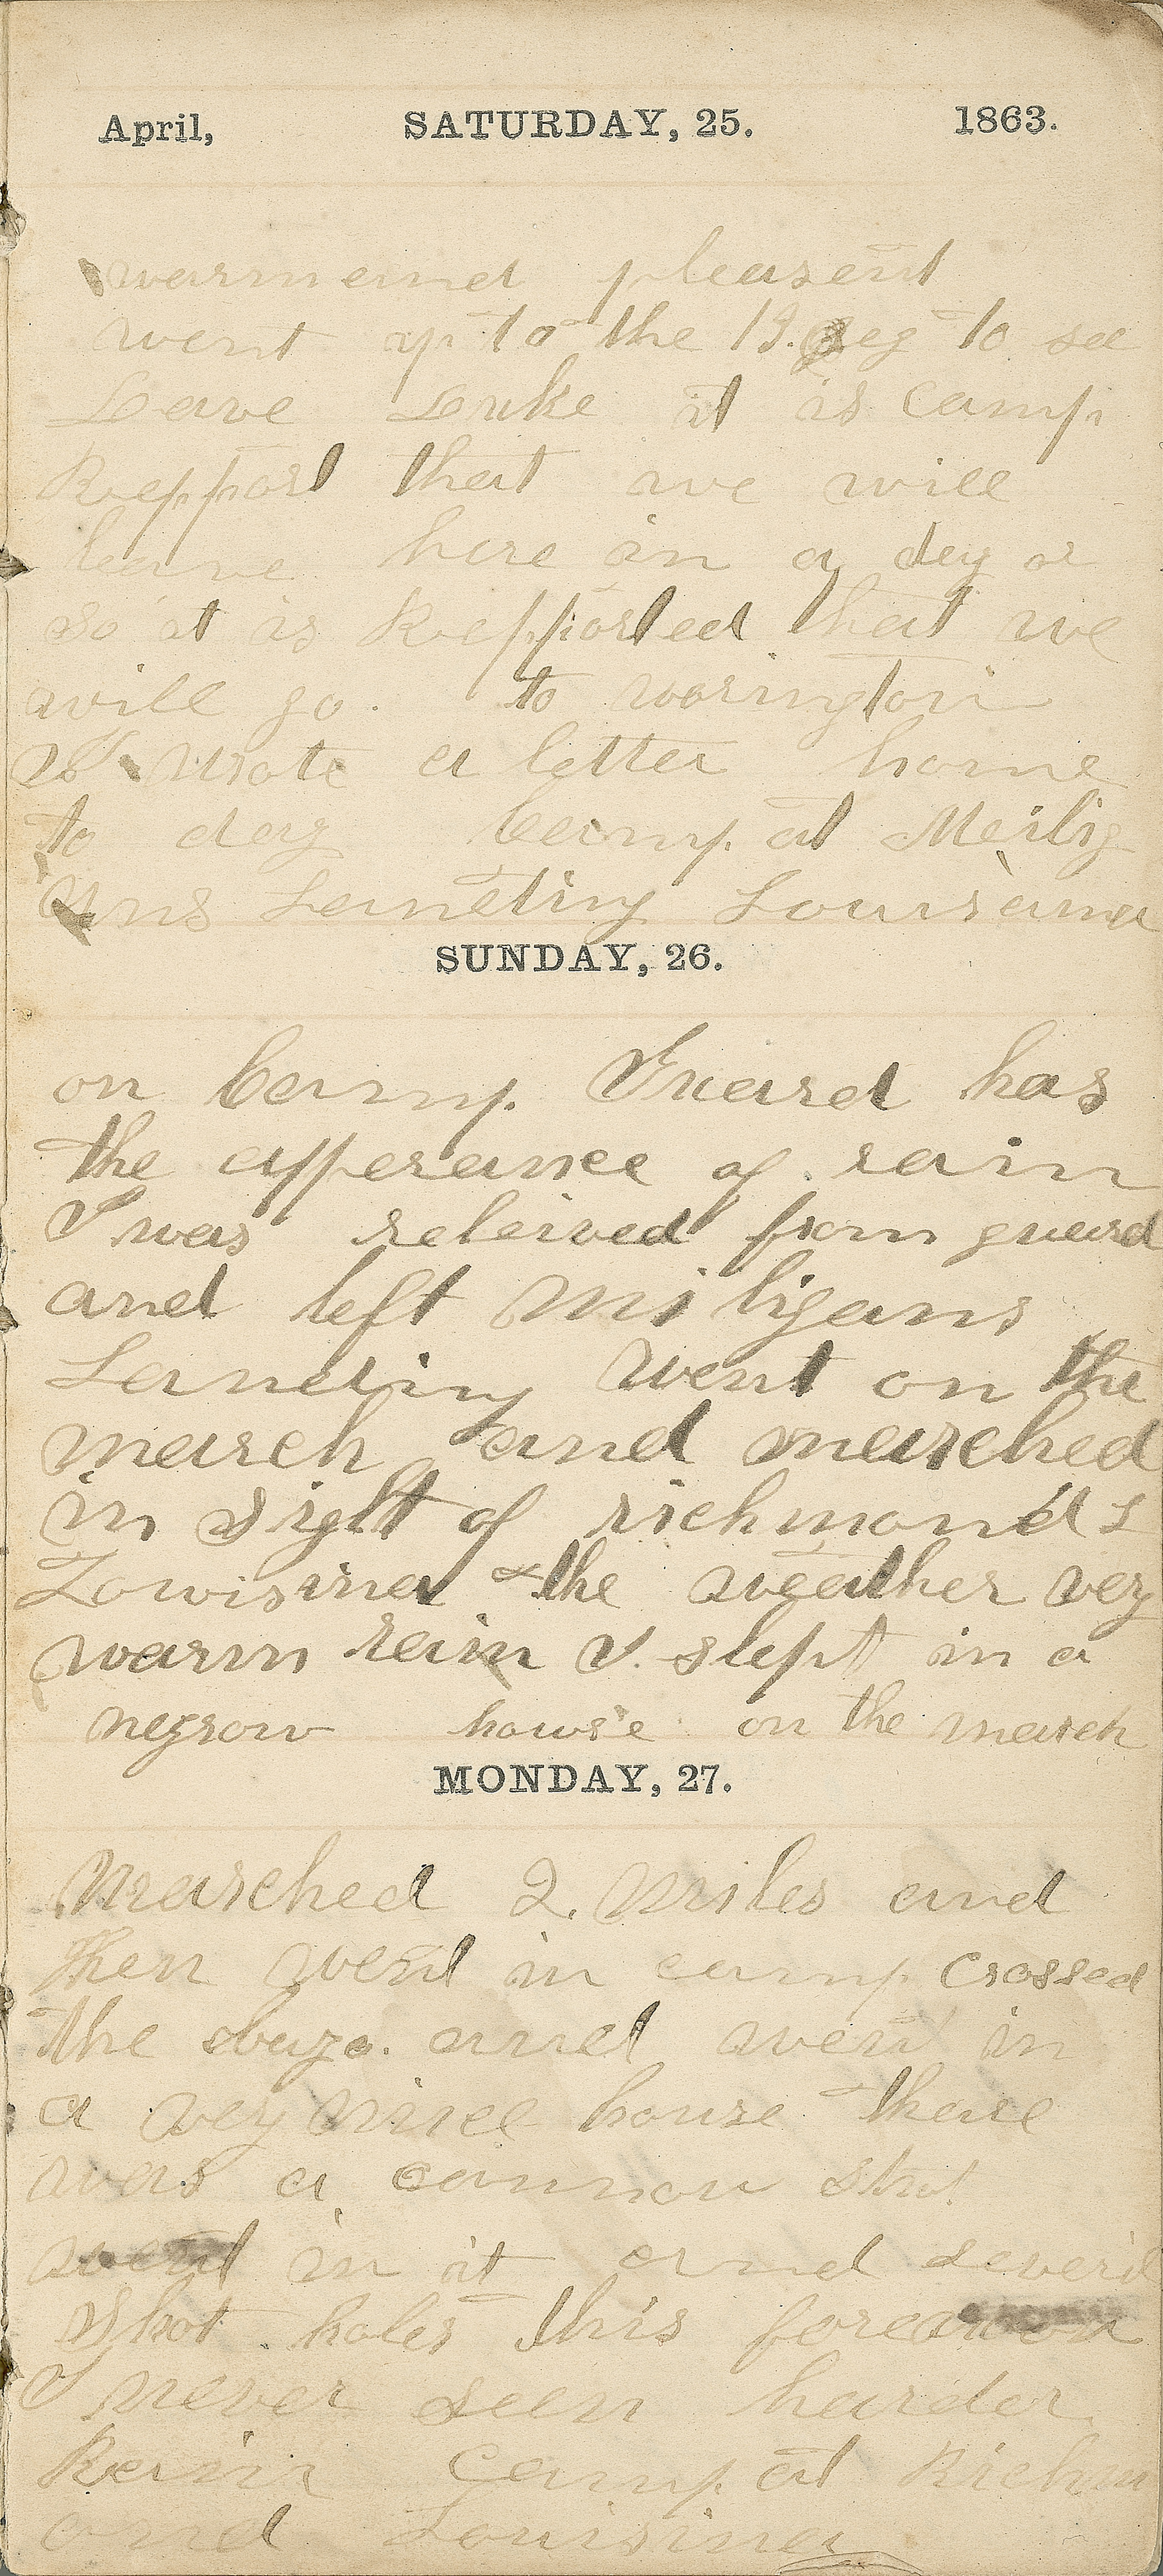 April, SATURDAY, 25. 1863.
warm and pleasent
went up to the 13. Reg to see
Leave Luke it is camp
Repport that we will
leave here in a day or
so it is Repported that we
will go. to worington
I wrote a letter home
to day Camp. at Meilig
ans Landing Louisana
SUNDAY, 26.
on Camp. Guard has
the apperance of rain
I was releived from guard
and left Miligans
Landing went on the
march and marched
in sight of richmond L
Lowisina & the weather very
warm rain I. slept in a
negrow howse on the march
MONDAY, 27.
Marched 2. Miles and
then went in camp. crossed
the and went in
a very nice house thare
was a cannon shot
went in it and
Shot holes this forenoon
I never seen harder
Rain Camp. at Richm
ond Louisina